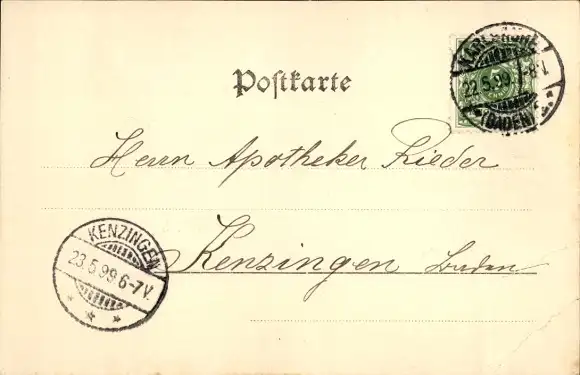 KARLSRUHE
22.5.99. 7-8V.
(BADEN)
Postkarte
Herrn Apotheker Rieder
Kenzingen Baden
KENZINGEN
23.5.99.6-7V.